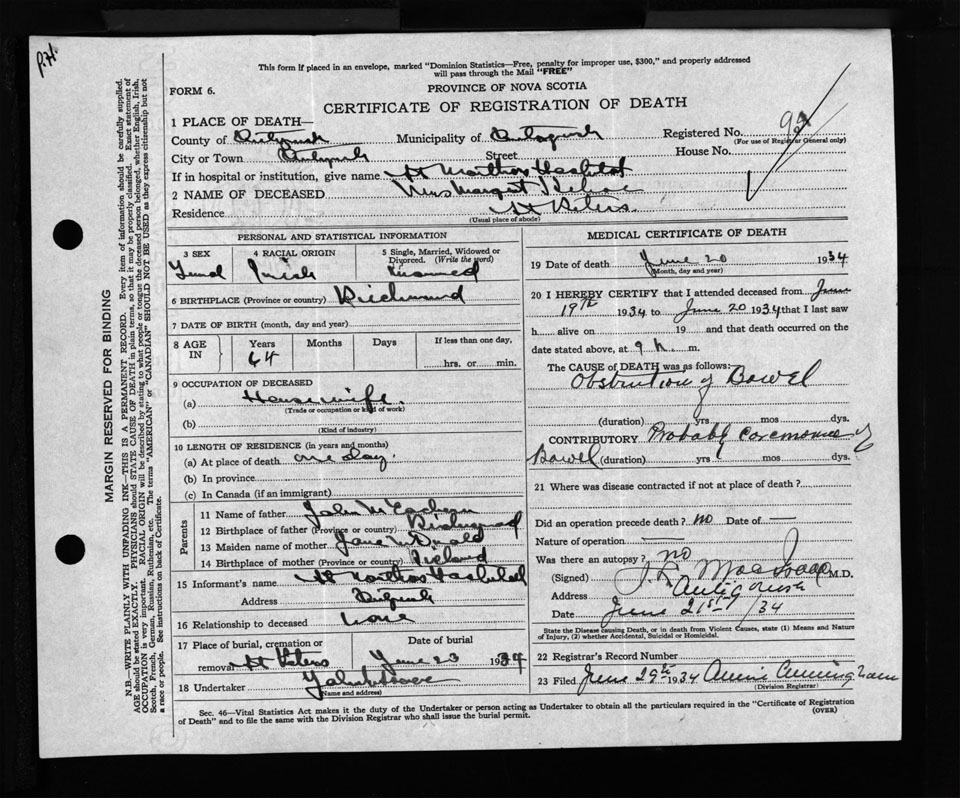 P.H.
This form if placed in an envelope, marked "Dominion Statistics—Free, penalty for improper use, $300," and properly addressed
will pass through the Mail "FREE"
FORM 6.
PROVINCE OF NOVA SCOTIA
CERTIFICATE OF REGISTRATION OF DEATH
1 PLACE OF DEATH—
County of Antigonish Municipality of Antigonish Registered No. 
(For use of Registrar General only)
City or Town Antigonish Street House No.
If in hospital or institution, give name St Marthas Hospital
2 NAME OF DECEASED Mrs Margret
Residence St Peters
(Usual place of abode)
PERSONAL AND STATISTICAL INFORMATION
3 SEX 4 RACIAL ORIGIN 5 Single, Married, Widowed or
Divorced. (Write the word)
Femal Irish Married
6 BIRTHPLACE (Province or country) Richmond
7 DATE OF BIRTH (month, day and year)
8 AGE IN Years Months Days If less than one day,
64 hrs. or min.
9 OCCUPATION OF DECEASED
(a) Housewife
(Trade or occupation or kind of work)
(b)
(Kind of industry)
10 LENGTH OF RESIDENCE (in years and months)
(a) At place of death one day.
(b) In province
(c) In Canada (if an immigrant)
Parents
11 Name of father John McEachern
12 Birthplace of father (Province or country) Richmond
13 Maiden name of mother Jane McDonald
14 Birthplace of mother (Province or country)
15 Informant's name St Marthas Hospital
Address Antigonish
16 Relationship to deceased None
17 Place of burial, cremation or Date of burial
removal St Peters June 23 1934
18 Undertaker John
(Name and address)
MEDICAL CERTIFICATE OF DEATH
19 Date of death June 20 1934
(Month, day and year)
20 I HEREBY CERTIFY that I attended deceased from June
19th 1934 to June 20 1934 that I last saw
h alive on 19 and that death occurred on
date stated above, at 9 m.
The CAUSE OF DEATH was as follows:
Obstruction of Bowel
(duration) yrs mos dys.
CONTRIBUTORY Probably Carcinoma of
Bowel (duration) yrs mos dys.
21 Where was disease contracted if not at place of death?
Did an operation precede death? no Date of —
Nature of operation —
Was there an autopsy? no
(Signed) MacIsaac M.D.
Address Antigonish
Date June 21st /34
State the Disease causing Death, or in death from Violent Causes, state (1) Means and Nature
of Injury, (2) whether Accidental, Suicidal or Homicidal.
22 Registrar's Record Number
23 Filed June 29th 1934 Annie Cunningham
(Division Registrar)
Sec. 46—Vital Statistics Act makes it the duty of the Undertaker or person acting as Undertaker to obtain all the particulars required in the "Certificate of Registration
of Death" and to file the same with the Division Registrar who shall issue the burial permit.
(OVER)
MARGIN RESERVED FOR BINDING
N.B.—WRITE PLAINLY WITH UNFADING INK—THIS IS A PERMANENT RECORD. Every item of information should be carefully supplied.
AGE should be stated EXACTLY. PHYSICIANS should STATE CAUSE OF DEATH in plain terms, so that it may be properly classified. Exact statement of
OCCUPATION is very important. RACIAL ORIGIN will be described by stating to what people or tongue the deceased person belonged, whether English, Irish,
Scotch, French, German, Russian, Ruthenian, etc. The terms "AMERICAN" or "CANADIAN" SHOULD NOT BE USED as they express citizenship but not
a race or people. See instructions on back of Certificate.